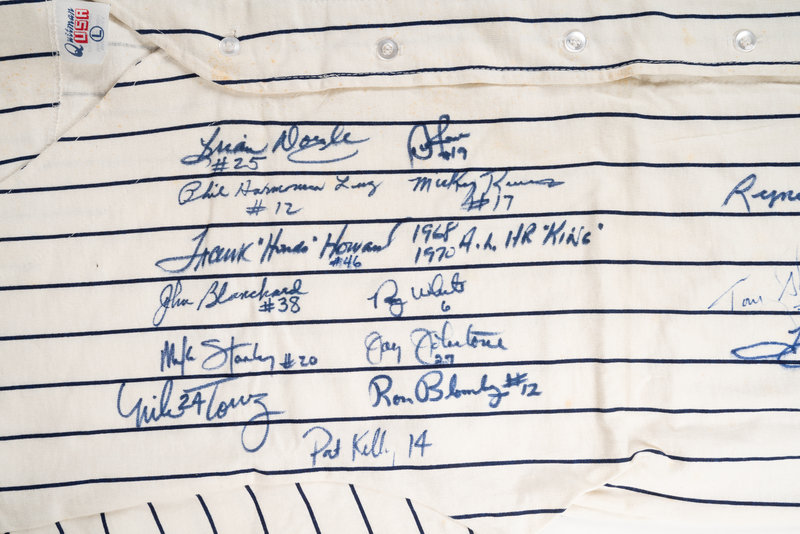 Quitman
USA
L
Brian Doyle
#25
#19
Phil Harmonica Linz
#12
Mickey Rivers
#17
Frank "Hondo" Howard
#46
1968
1970 A.L. HR "KING"
John Blanchard
#38
Roy White
6
Mike Stanley #20
Jay Johnstone
27
Mike 24 Torrez
Ron Blomberg #12
Pat Kelly, 14
Tom